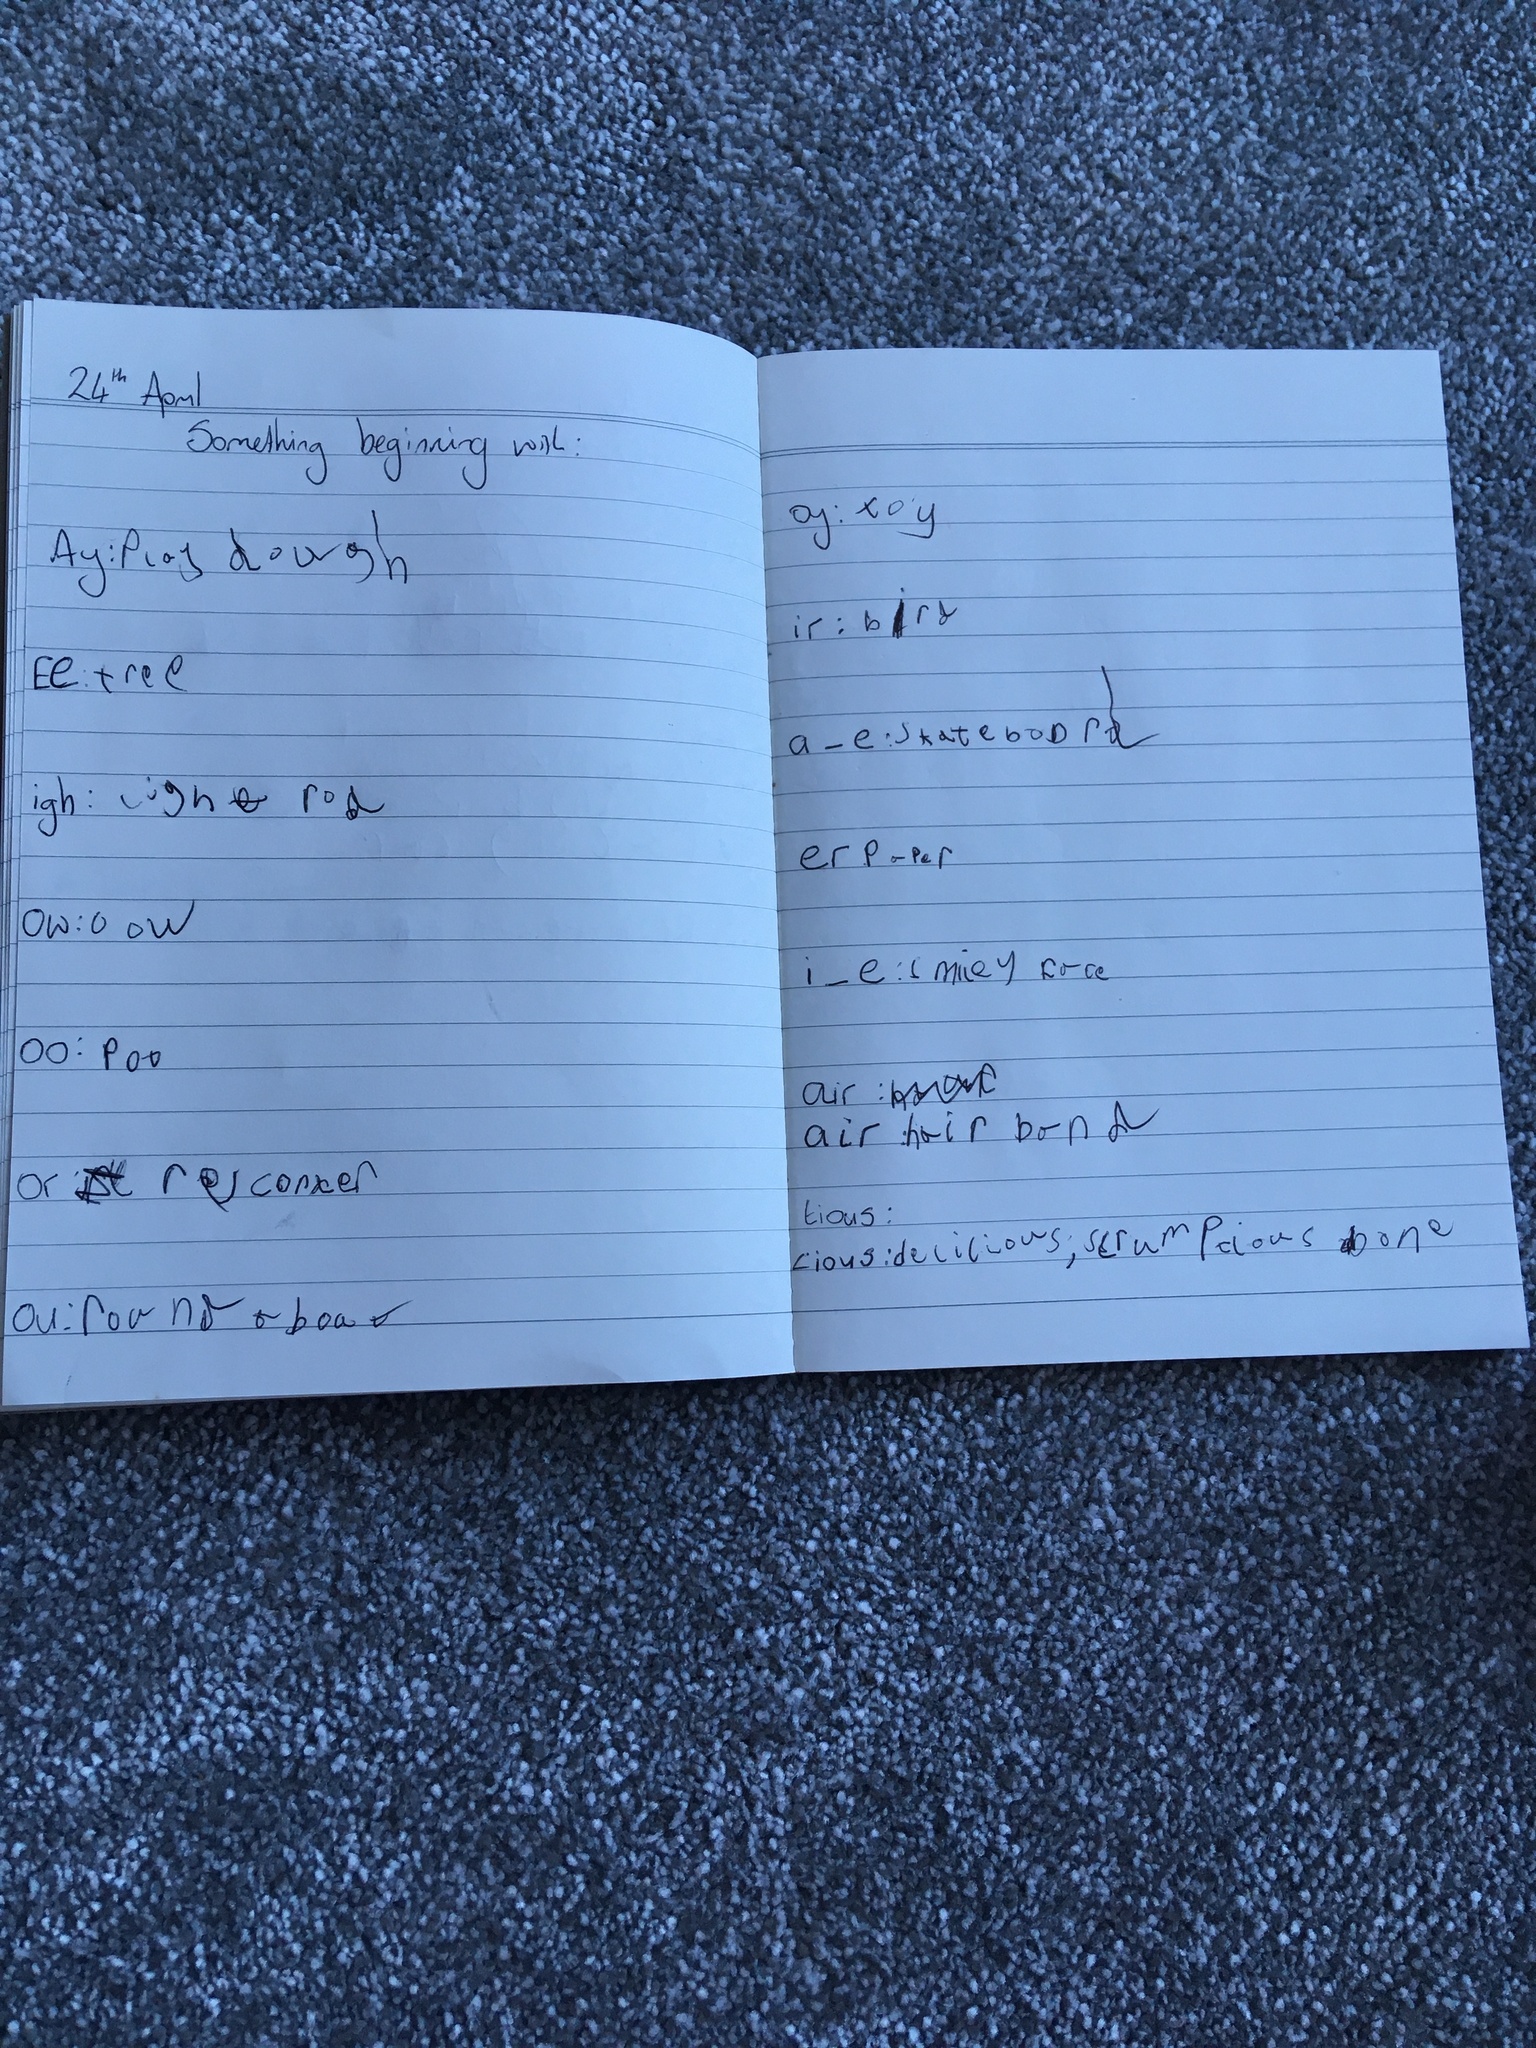 24th April
Something beginning with:
Ay: Play dough
EE: tree
igh: light rod
ow: o ow
oo: Poo
or
ou: round a boat
oy: toy
ir: bird
a_e: skateboard
er Paper
i_e: smiley face
air:
air: hair band
tious:
cious: delicious, scrumptious bone